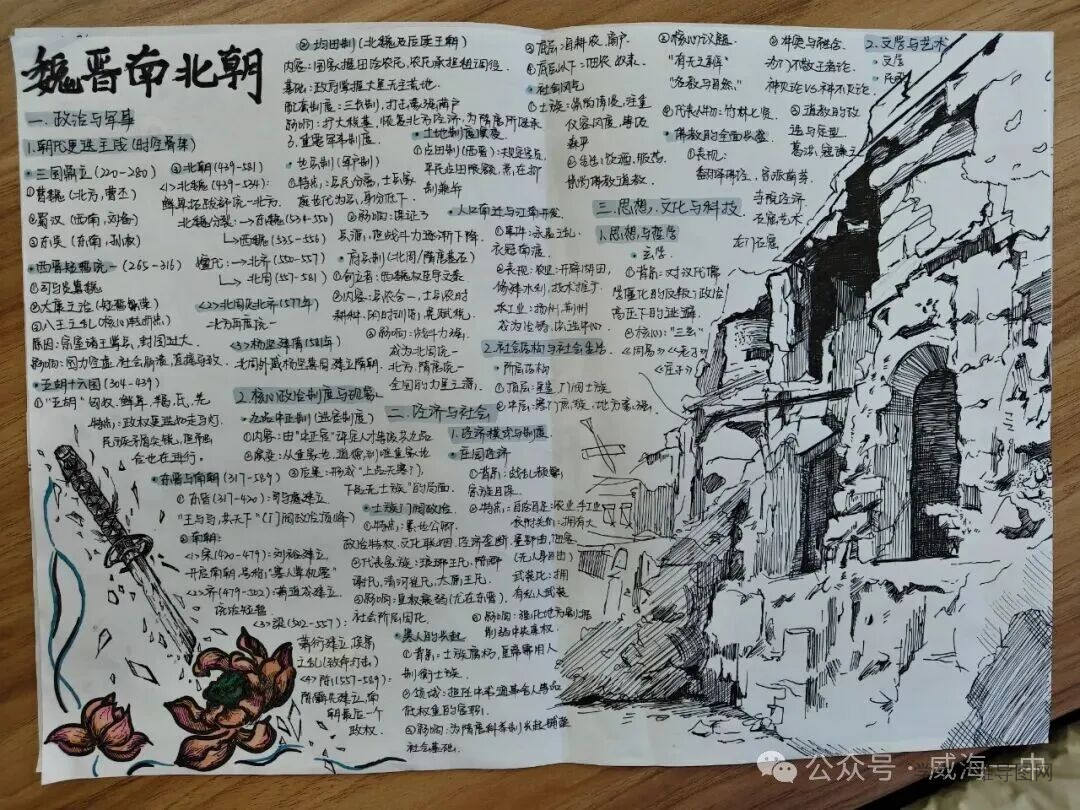 魏晋南北朝
一. 政治与军事
1.朝代更迭主线(时空骨架)
·三国鼎立(220-280)
①曹魏(北方,曹丕)
②蜀汉(西南,刘备)
③东吴(东南,孙权)
·西晋短暂统一(265-316)
①司马炎篡魏
②太康之治(短暂繁荣)
③八王之乱(核心转折点)
原因:宗室诸王掌兵,封国过大
·五胡十六国(304-439)
①"五胡" 匈奴、鲜卑、羯、氐、羌
特点:政权更迭如走马灯
民族矛盾尖锐,但融
合也在进行。
·东晋与南朝(317-589)
①东晋(317-420):司马睿建立
"王与马,共天下"(门阀政治顶峰)
②南朝:
<1>宋(420-479):刘裕建立
开启南朝,
<2>齐(479-502):萧道成建立
政治短暂
<3>梁(502-557):
萧衍建立,
之乱(致命打击)
<4>陈(557-589):
陈霸先建立,南
朝最后一个
政权.
④北朝(439-581)
<1>北魏(439-534):
鲜卑拓跋部统一北方.
北魏分裂:→东魏(534-550)
↳西魏(535-556)
演化:→北齐(550-577)
↳北周(557-581)
<2>北周灭北齐(577年)
北方再度统一
<3>杨坚建隋(581年)
北周外戚杨坚篡周建立隋朝.
2.核心政治制度与现象
·九品中正制(选官制度)
①内容:由"中正官"评定人才等级,
②演变:从重家世、道德,到唯重家世
③后果:形成"上品无寒门,
下品无士族"的局面.
·士族门阀政治.
①特点:累世公卿.
政治特权,文化联姻,经济垄断
②代表家族:琅琊王氏,陈郡
谢氏,清河崔氏,太原王氏.
③影响:皇权衰弱(尤在东晋).
社会阶层固化.
·寒人的兴起
①背景:士族腐朽,皇帝需用人
制衡士族.
②领域:担任中书通事舍人等品
低权重的官职.
③影响:为隋唐科举制兴起铺垫
社会基础.
②均田制(北魏及后续王朝)
内容:国家授田给农民,农民承担租调徭役.
基础:政府掌握大量无主荒地.
配套制度:三长制,打击豪强荫户
影响:扩大税基,恢复北方经济,为隋唐所继承
3.重要军事制度
·世兵制(军户制)
①特点:兵民分离,士兵家
庭世代为兵,身份低下.
②影响:保证了
兵源,但战斗力逐渐下降.
·府兵制(北周/隋唐基石)
①创立者:西魏权臣宇文泰
②内容:兵农合一,士兵农时
耕种,闲时训练,
③影响:战斗力强.
成为北周统一
北方,隋唐统一
全国的力量之源.
二. 经济与社会
1.经济模式与制度.
·庄园经济
①背景:战乱频繁,
豪族自保.
②特点:自给自足:农业、手工业
③影响:强化地方割据
削弱中央集权.
·土地制度演变
①占田制(西晋):规定官员、
平民占田限额,意在抑
制兼并
·人口南迁与江南开发.
①事件:永嘉之乱.
衣冠南渡.
②表现:农业:开辟圩田,
修建水利,技术推广
手工业:扬州,荆州
成为冶铸,
2.社会结构与社会生活
·阶层结构
①顶层:皇室、门阀士族
②中层:寒门庶族,地方豪强.
③底层:自耕农,佃户
④底层以下:奴隶.
·社会风气
①士族:崇尚清谈,注重
仪容风度,
三. 思想,文化与科技
1.思想与哲学
·玄学.
①背景:对汉代儒
学僵化的反叛;政治
高压下的逃避
②核心:"三玄"
《周易》《老子》
《庄子》
③核心议题.
"有无之辨"
"名教与自然"
④代表人物:竹林七贤.
·佛教的全面兴盛
①表现:
翻译佛经,
寺院经济
石窟艺术
龙门石窟
②冲突与融合
沙门不敬王者论.
神灭论VS神不灭论.
·道教的改
造与定型
葛洪,寇谦之
2.文学与艺术
·文学
公众号·威海一中